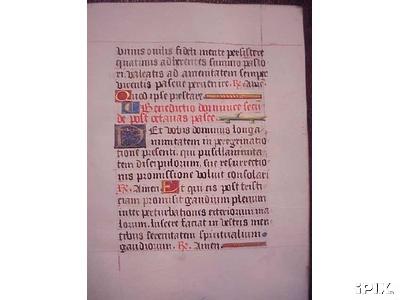 vnius ouilis fidei mente persistere
quatinus adherentes summo pasto
ri. valeatis ad amenitatem semper
viventis pascue peruenire. Rx. Amen.
Quod ipse prestare
Benedictio dominice secu
de post octauas pasce.
Det vobis dominus longa
nimitatem in peregrinatio
tione presenti. qui pusillanimita
tem discipulorum. sue resurrectio
nis promissione voluit consolari
Rx. Amen Et qui eis post tristi
ciam promisit gaudium plenum
inter perturbationes exteriorum ma
lorum. lucere faciat in vestris men
tibus serenitatem spiritualium
gaudiorum. Rx. Amen
iPIX